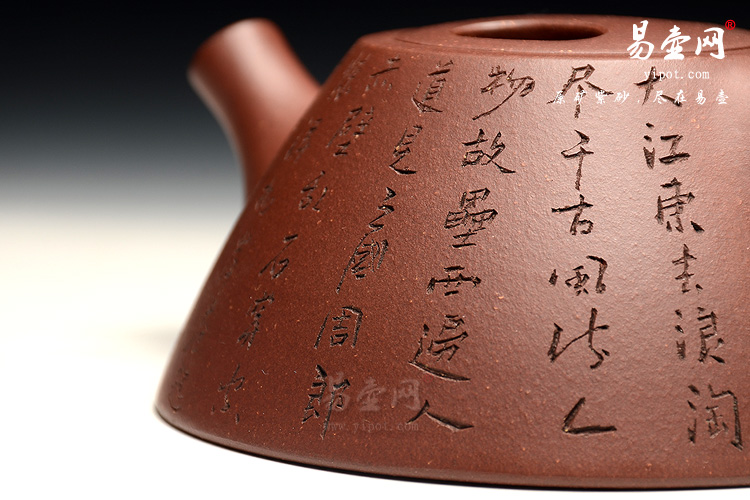 易壺网®
yipot.com
原矿紫砂,尽在易壶
大江東去浪淘
尽千古風流人
物故壘西邊人
道是三國周郎
赤壁乱石穿空
易壺网
www.yipot.com